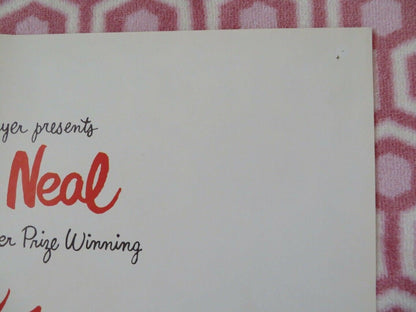 yer presents
Neal
er Prize Winning